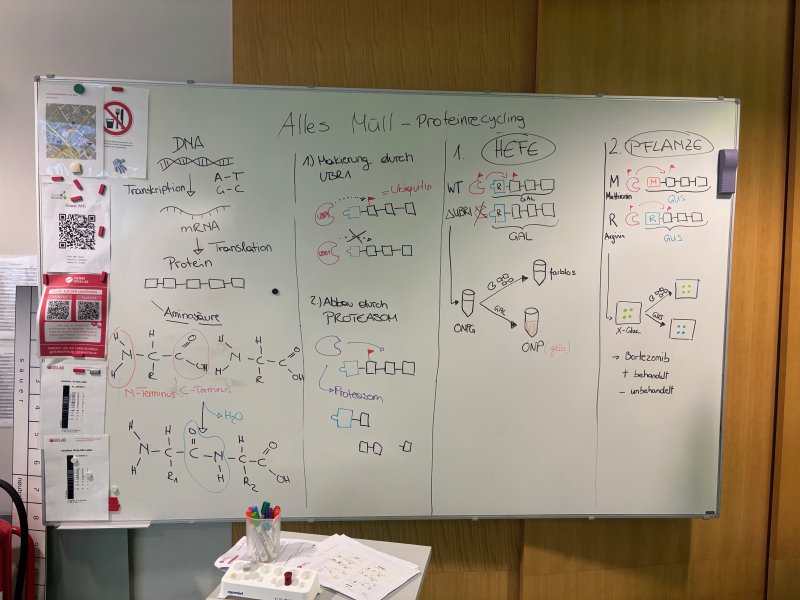 Alles Müll – Proteinrecycling
DNA
A – T
G – C
Transkription
mRNA
Translation
Protein
Aminosäure
H
H
N
C
H
R
C
O
OH
H
H
N
C
H
R
C
O
OH
N-Terminus C-Terminus
H2O
H
H
N
C
H
R1
C
O
N
H
C
H
R2
C
O
OH
1) Markierung durch
UBR1
= Ubiquitin
UBR1
UBR1
2) Abbau durch
PROTEASOM
Proteasom
1. HEFE
WT
R
GAL
ΔUBR1
R
GAL
farblos
GAL
ONPG
ONP (gelb)
2. PFLANZE
M
Methionin
M
GUS
R
Arginin
R
GUS
X-Gluc
GUS
→ Bortezomib
+ behandelt
– unbehandelt
sauer
neutral
3
4
5
6
7
8